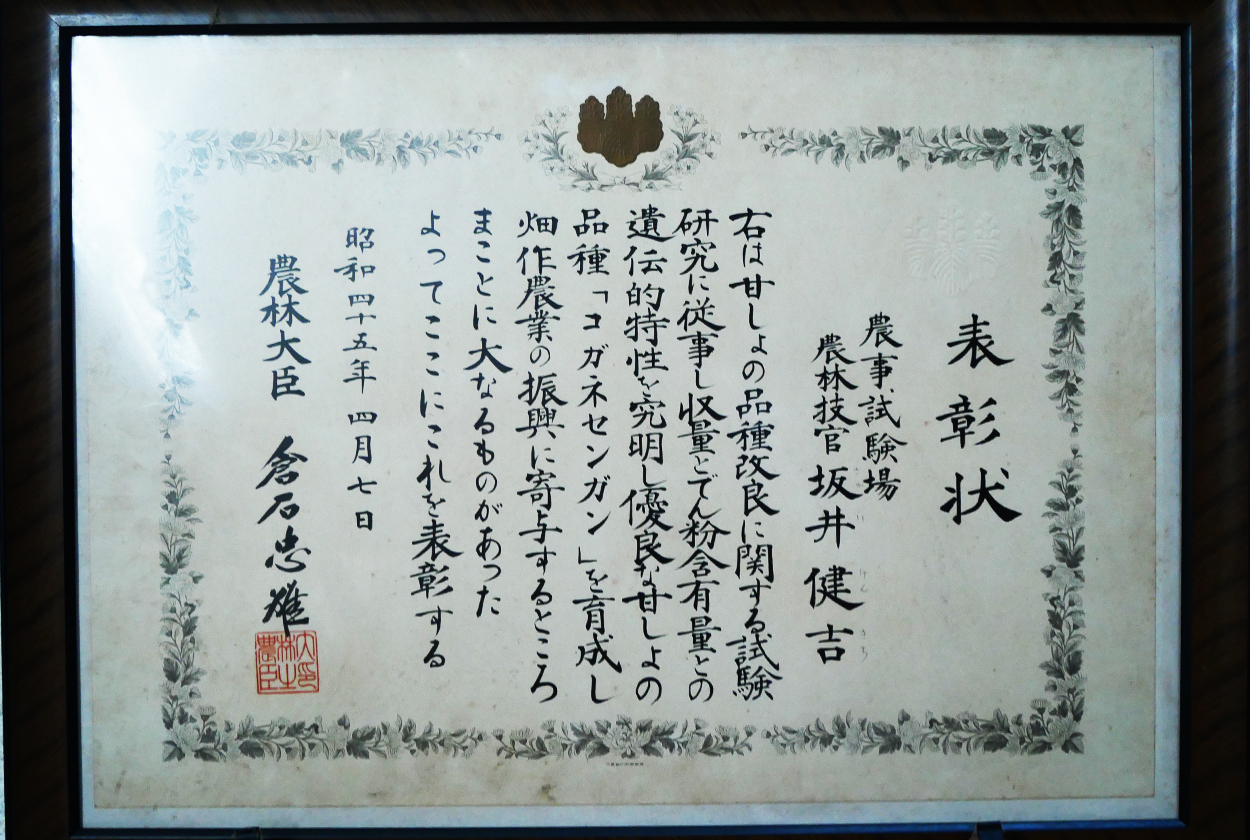 表彰状
農事試験場
農林技官 坂井健吉
右は甘しょの品種改良に関する試験
研究に従事し収量とでん粉含有量との
遺伝的特性を究明し優良な甘しょの
品種「コガネセンガン」を育成し
畑作農業の振興に寄与するところ
まことに大なるものがあった
よってここにこれを表彰する
昭和四十五年四月七日
農林大臣 倉石忠雄